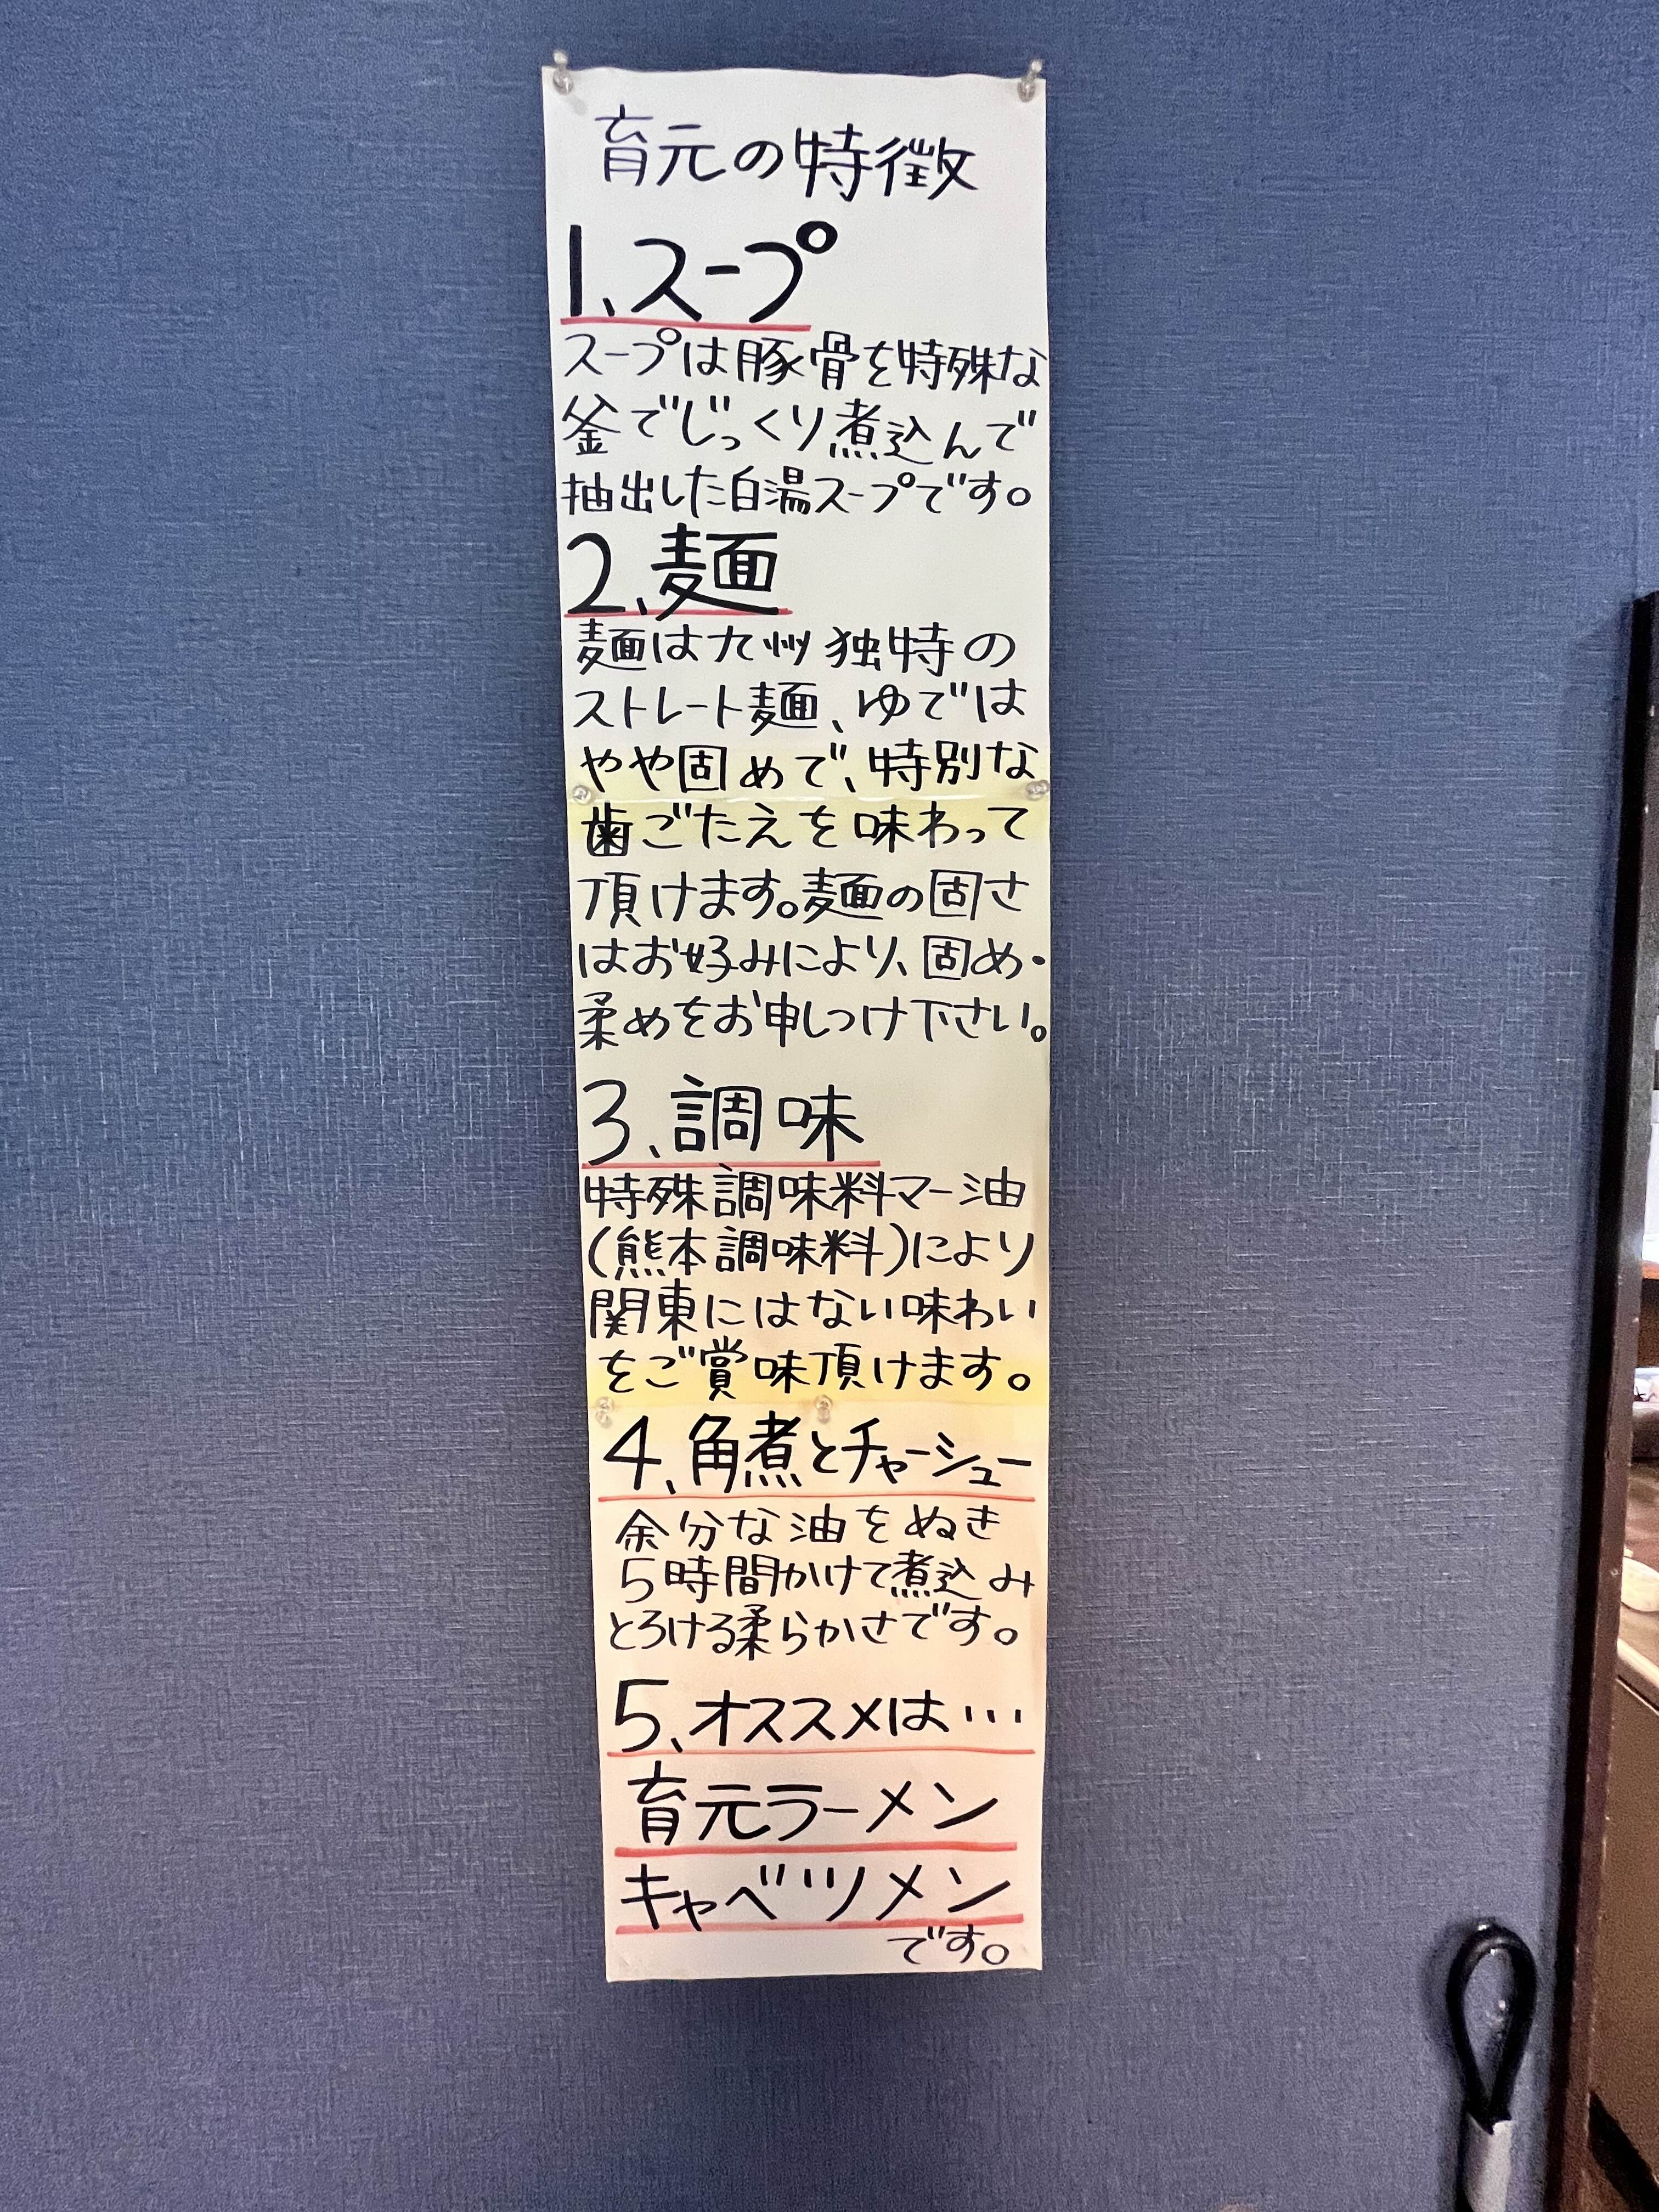 育元の特徴
1、スープ
スープは豚骨を特殊な
釜でじっくり煮込んで
抽出した白湯スープです。
2、麺
麺は九州独特の
ストレート麺、ゆでは
やや固めで、特別な
歯ごたえを味わって
頂けます。麺の固さ
はお好みにより、固め・
柔めをお申しつけ下さい。
3、調味
特殊調味料マー油
(熊本調味料)により
関東にはない味わい
をご賞味頂けます。
4、角煮とチャーシュー
余分な油をぬき
5時間かけて煮込み
とろける柔らかさです。
5、オススメは…
育元ラーメン
キャベツメン
です。